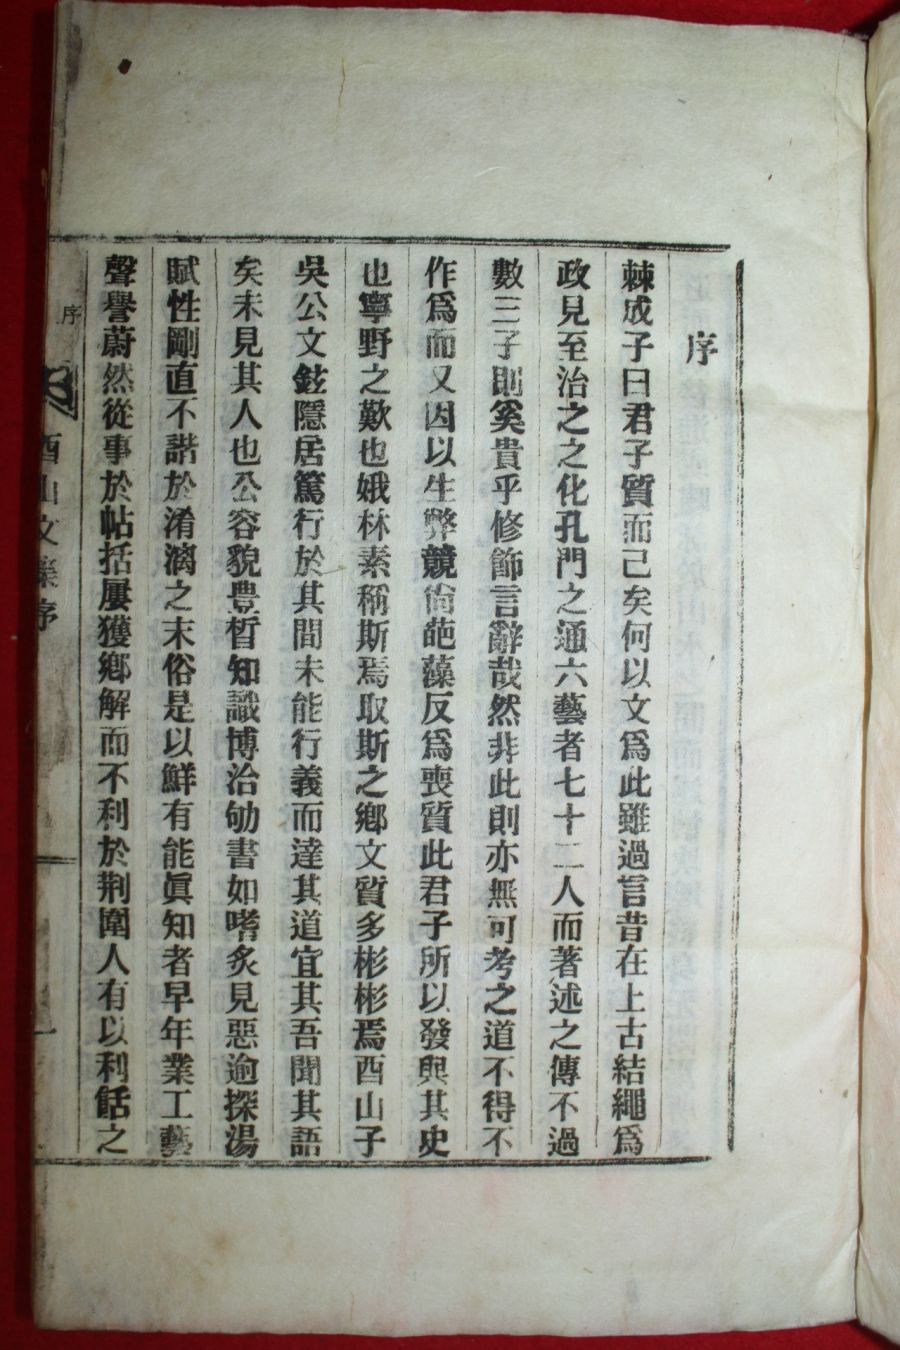 序
棘成子曰君子質而已矣何以文爲此雖過言昔在上古結繩爲
政見至治之之化孔門之通六藝者七十二人而著述之傳不過
數三子則奚貴乎修飾言辭哉然非此則亦無可考之道不得不
作爲而又因以生弊競尙葩藻反爲喪質此君子所以發與其史
也寧野之歎也娥林素稱斯焉取斯之鄕文質多彬彬焉酉山子
吳公文鉉隱居篤行於其間未能行義而達其道宜其吾聞其語
矣未見其人也公容貌豊晳知識博洽劬書如嗜炙見惡逾探湯
賦性剛直不諧於淆漓之末俗是以鮮有能眞知者早年業工藝
聲譽蔚然從事於帖括屢獲鄕解而不利於荆圍人有以利餂之
序
酉山文集序
一